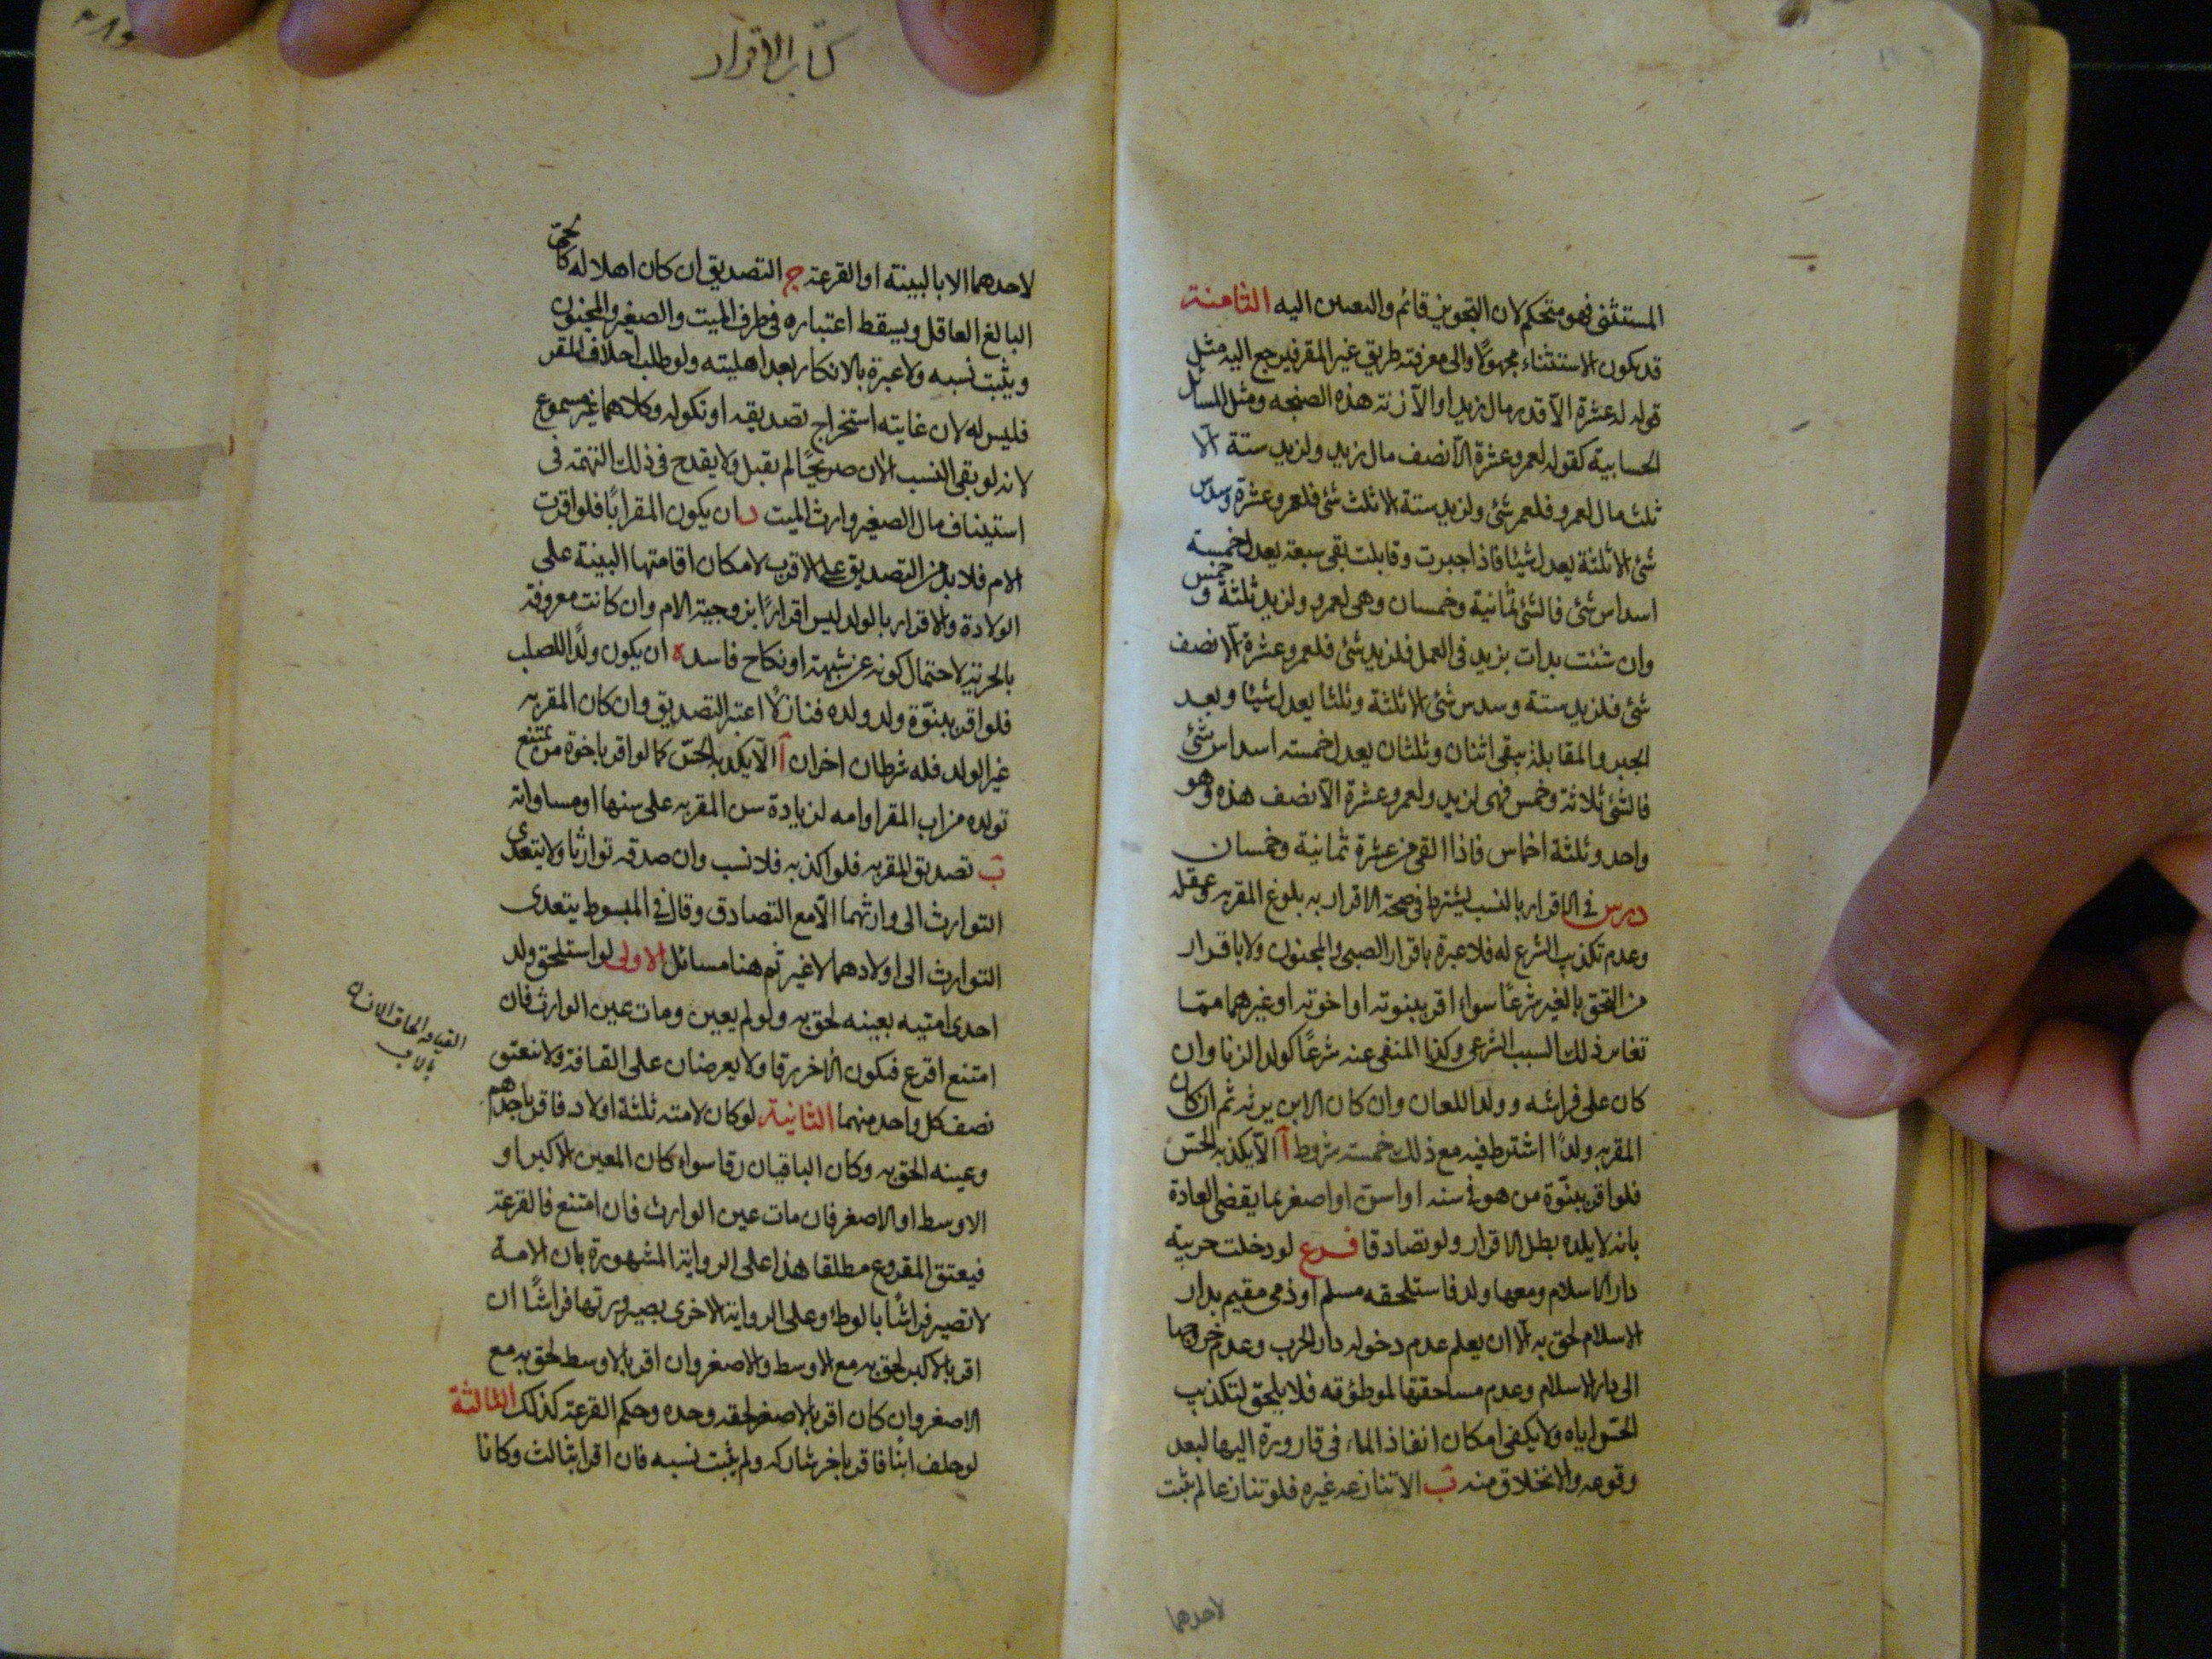 المستثنى فهو متحكم لان التجويز قائم والتعيين اليه الثامنة
قد يكون الاستثناء مجهولًا والى معرفته طريق غير المقر فيرجع اليه مثل
قوله له عشرة الّا قدر مال زيد او الّا زنة هذه الصنجه ومثل المسائل
الحسابية كقوله لعمرو عشرة الّا نصف مال زيد ولزيد ستة الّا
ثلث مال لعمرو فلعمر شئ ولزيد ستة الا ثلث شئ فلعمرو عشرة وسدس
شئ الا ثلثة يعدل شيئا فاذا جبرت وقابلت بقى سبعة يعدل خمسة
اسداس شئ فالشئ ثمانية وخمسان وهى لعمرو ولزيد ثلثة و خمس
وان شئت بدات بزيد فى العمل فلزيد شئ فلعمرو عشرة الّا نصف
شئ فلزيد ستة وسدس شئ الا ثلثة وثلثا يعدل شيئا وبعد
الجبر والمقابلة يبقى اثنان وثلثان يعدل خمسة اسداس شئ
فالشئ ثلاثة وخمس فهى لزيد ولعمرو عشرة الّا نصف هذه وهو
واحد وثلثة اخماس فاذا القى من عشرة ثمانية وخمسان
درس فى الاقرار بالنسب يشترط فى صحة الاقرار به بلوغ المقر به وعقله
وعدم تكذيب الشرع له فلا عبرة باقرار الصبى والمجنون ولا باقرار
من التحق بالغير شرعًا سواء اقر ببنوته او اخوته او غيرهما مما
تغاير ذلك السبب الشرعى وكذا المنفى عنه شرعًا كولد الزنا وان
كان على فراشه وولد اللعان وان كان الابن يرثه ثم ان كان
المقر به ولدًا اشترط فيه مع ذلك خمسة شروط آ الّا يكذبه الحسّ
فلو اقر ببنوّة من هو فى سنه او اسن او اصغر بما يقضى العادة
بانه لا يلده بطل الاقرار ولو تصادقا فرع لو دخلت حربية
دار الاسلام ومعها ولد فاستلحقه مسلم او ذمى مقيم بدار
الاسلام لحق به الّا ان يعلم عدم دخوله دار الحرب وعدم خروجها
الى دار الاسلام وعدم مساحقتها لموطؤته فلا يلحق لتكذيب
الحسّ اياه ولا يكفى امكان انفاذ الماء فى قارورة اليها لبعد
وقوعه والانخلاق منه ب الا تنازعه غيره فلو تنازعا لم يثبت
لاحدهما
كتاب الاقرار
لاحدهما الا بالبينة او القرعة ج التصديق ان كان اهلا له كا
البالغ العاقل ويسقط اعتباره فى طرف الميت والصغير والمجنون
ويثبت نسبه ولا عبرة بالانكار بعد اهليته ولو طلب احلاف المقر
فليس له لان غايته استخراج تصديقه او نكوله وكلاهما غير مسموع
لانه لو بقى النسب الان صريحًا لم يقبل ولا يقدح فى ذلك التهمة فى
استيناف مال الصغير وارث الميت د ان يكون المقر ابًا فلو اقرت
الام فلا بد من التصديق على الاقرب لامكان اقامتها البينة على
الولادة والاقرار بالولد ليس اقرارًا بزوجية الام وان كانت معروفة
بالحرية لاحتمال كونه عن شبهة او نكاح فاسد ه ان يكون ولدًا للصلب
فلو اقر ببنوّة ولد ولده فنازلًا اعتبر التصديق وان كان المقر به
غير الولد فله شرطان اخران آ الّا يكذبه الحسّ كما لو اقر باخوة من يمتنع
تولده من اب المقر او امه لزيادة سن المقر به على سنها او مساواته
ب تصديق المقر به فلو اكذبه فلا نسب وان صدقه توارثا ولا يتعدى
التوارث الى وارثهما الّا مع التصادق وقال فى المبسوط يتعدى
التوارث الى اولادهما لا غير ثم هنا مسائل الاولى لو استلحق ولد
احدى امتيه بعينه لحق به ولو لم يعين ومات عين الوارث فان
امتنع اقرع فيكون الاخر رقا ولا يعرضان على القافة ولا ينعتق
نصف كل واحد منهما الثانية لو كان لامته ثلثة اولاد فاقر باحدهم
وعينه الحق به وكان الباقيان رقا سواء كان المعين الاكبر او
الاوسط او الاصغر فان مات عين الوارث فان امتنع فالقرعة
فيعتق المقروع مطلقا هذا على الرواية المشهورة بان الامة
لا تصير فراشًا بالوطئ وعلى الرواية الاخرى بصيرورتها فراشًا ان
اقر بالاكبر لحق به مع الاوسط والاصغر وان اقر بالاوسط لحق به مع
الاصغر وان كان اقر بالاصغر لحقه وحده وحكم القرعة كذلك الثالثة
لو خلف ابنًا فاقر باخر شاركه ولم يثبت نسبه فان اقرا بثالث وكانا
القيافه الحاق
بالاب